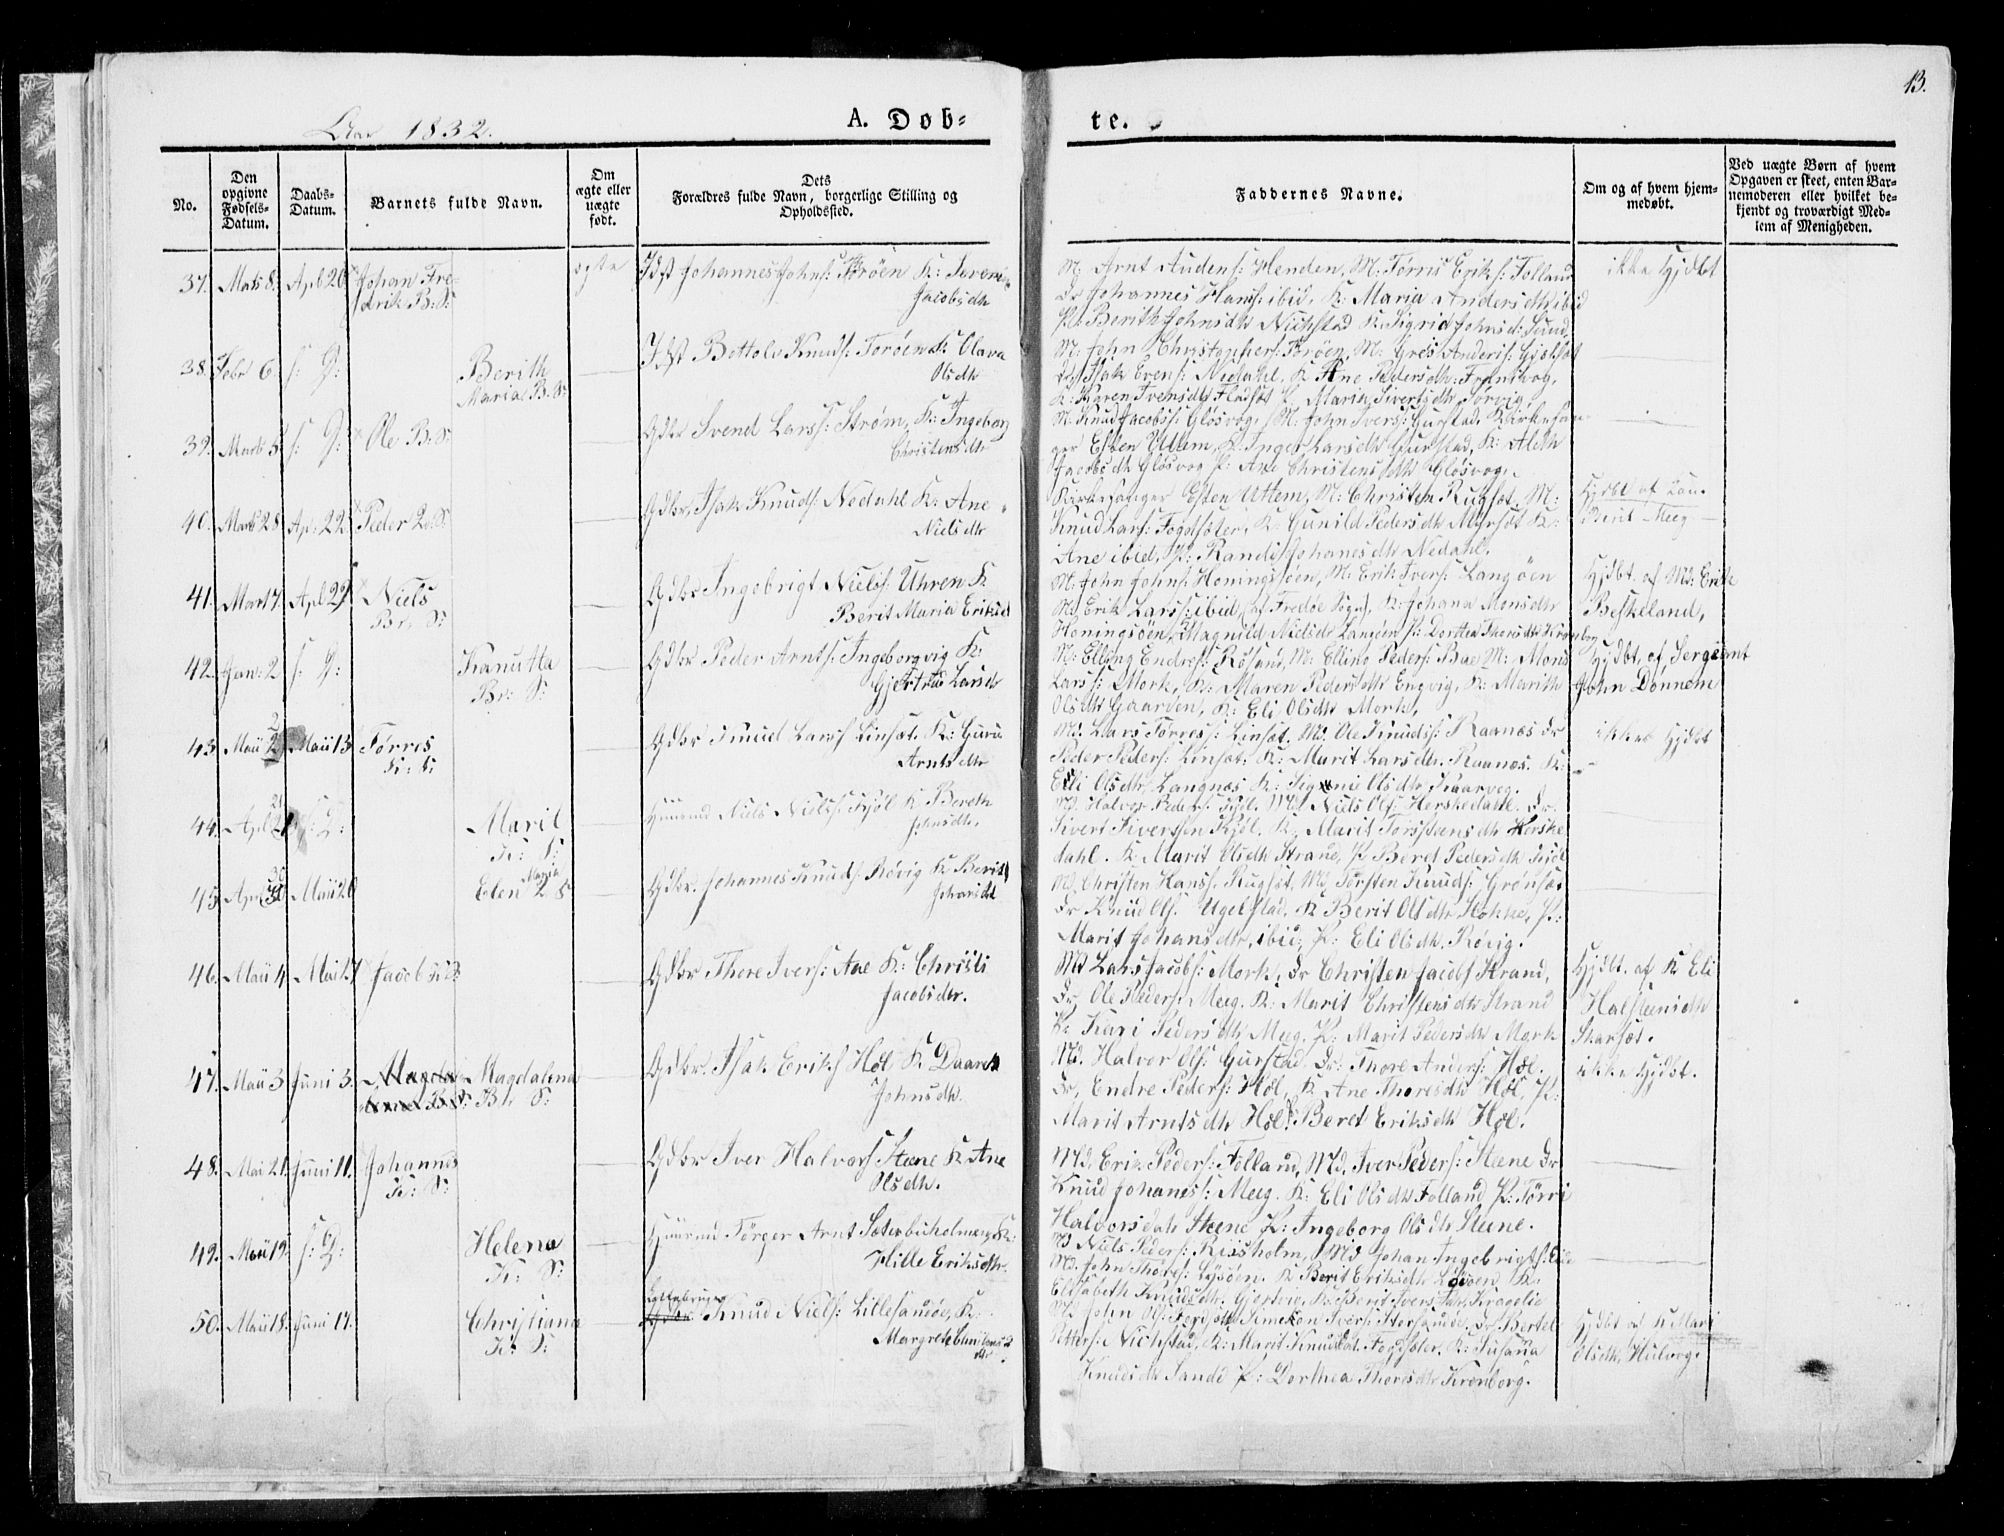 13.
Aar 1832.
A. Døb-
te.
No.
Den opgivne Fødsels-Datum.
Daabs-Datum.
Barnets fulde Navn.
Om ægte eller uægte født.
Dets Forældres fulde Navn, borgerlige Stilling og Opholdssted.
Faddernes Navne.
Om og af hvem hjem-medøbt.
Ved uægte Børn af hvem Opgaven er skeet, enten Bar-nemoderen eller hvilket be-kjendt og troværdigt Med-lem af Menigheden.
37. Mars 8. Apl 20 Johan Fre-
drik B: S:
ægte
Johannes Johns: K:
Jacobsdtr
M: Arnt Audens: Henden, M: Tørris Eriks: Folland
Dr Johannes Hans: ibid, K: Maria Andersdtr ibid
P: Berith Johnsdtr Nichstad K: Sigrid Johnsd: Sund,
ikke Hjdbt
38. Febr 6. s: D: Berith
Maria B. S:
Bottolv Knuds: Torøen K: Olava
Olsdtr
M: John Christophers: M: Anders:
Isak Evens: Nedahl, K Ane Pedersdtr
K: Karen Marith Sivertsdtr Torvig
39. Mars 5. s: D: Ole B: S:
Gdbr Svend Larss: Strøm, K: Ingeborg
Christensdtr
M: Knud Jacobss: Gløsvog, M: John Ivers: Gurstad, Kirkesan-
ger Esten Uttem, K: Inger Larsdtr Gurstad, K: Aleth
Jacobsdtr Gløsvog P: Ane Christensdtr Gløsvog.
40. Mars 28. Apl 22. Peder B: S:
Gdbr. Isak Knuds: Nedahl K: Ane
Nielsdtr
Kirkesanger Esten Uttem, M: Christen Rugset, M:
Knud Lars: Fogdsæter, K: Gunild Pedersdtr Myrset K:
Ane ibid, P: Randi Johanesdtr Nedahl.
Hjdbt af
Berit Meeg
41. Mars 7. Apl 29 Niels
Br: S:
Gdbr Ingebrigt Niels: Uhren K
Berit Maria Eriksd
M: John Johns: Honingsøen, M: Erik Ivers: Langøen
M: Erik Larss: ibid (af Fredøe Sogn), K: Johana Monsdtr
Honingsøen, Magnild Nielsdtr Langøen P: Dorthea Thoresdtr Kronborg
Hjdbt. af Md: Erik
Beskeland,
42. Jan: 2 s: D: Kanutta
Br: S:
Gdbr Peder Arnts: Ingeborgvig K:
Gjertrud Larsdr
M: Elling Endres: Røsand, M: Elling Peders: Bae M: Mons
Larss: Mork, K: Maren Pedersdtr Engvig, K: Marith
Olsdtr Gaarden, K: Eli Olsdtr Mork,
Hjdbt. af Sergeant
John Donnem
43. Maii 2 Maii 13 Tørris
K: S:
Gdbr Knud Lars Linset K: Guru
Arntsdtr
Md. Lars Tørress: Linset, Md. Ole Knudss: Raanes Dr
Peder Peders: Linset, K: Marit Larsdtr. Raanes. K:
Eli Olsdtr, Langnæs K: Signe Olsdtr, Kaarvog.
ikke Hjdbt
44. Apl 21 s: D: Marit
K: S:
Huusmd Niels Niels: Kjøl K Bereth
Johnsdtr,
Md. Halvor Peders: Kjøl, Md Niels Ols: Herskedahl. Dr.
Sivert Siverssen Kjøl, K: Marit Torsstensdtr Herske
dahl. K Marit Olsdtr Strand, P: Beret Pedersdtr Kjøl
45. Apl 30 Maii 20 Elen Maria
Gdbr. Johannes Knuds: Røvig K Berit
Johansdt
Md. Christen Hanss: Rugset, Md Torsten Knuds: Grønset
Dr Knud Ols: Ugelstad, K Berit Olsdtr Hokke, P:
Marit Johansdtr, ibid, P: Eli Olsdtr. Røvig.
46. Maii 4. Mai 27 Jacob K: S:
Gdbr Thore Ivers: Aae K: Christi
Jacobsdtr.
Md Lars Jacobs: Mork, Dr Christen Jacobs Strand,
Dr, Ole Peders: Meeg. K: Marit Christensdtr Strand
P: Kari Pedersdtr, Meeg, P: Marit Pedersdtr Mork
Hjdbt. af K Eli
Halsteensdtr
Skarset.
47. Maii 3 Juni 3. Magdalena
Br: S:
Gdbr. Isak Eriks Høl K Daaret
Johnsdtr.
Md. Halvor Ols: Gurstad. Dr: Thore Anders: Høl.
Dr, Endre Peders: Høl, K Ane Thoresdtr Høl, P:
Marit Arntsdtr Høl. P: Beret Eriksdtr Høl.
ikke Hjdbt.
48. Mai 21. Juni 11. Johannes
K: S:
Gdbr Iver Halvors: Steene K Ane
Olsdtr.
Md, Erik Peders: Folland, Md, Iver Peders: Steene Dr
Knud Johanes: Meeg. K: Eli Olsdtr Folland P: Tørri
Halvorsdatr Steene P: Ingeborg Olsdtr Steene.
49. Maii 19. s: D: Helena
K: S:
Huusmd Tørger Arnt Sæterbueholmen K:
Hille Eriksdtr.
Md Niels Peders: Rissholm, Md Johan Ingebrigts: Eide
Md. John Thores: Lysøen. K Berit Eriksdtr Lysøen, K:
Elisabeth Knudsdtr. K: Berit Iversdatr, Kragelie
50. Maii 18. Juni 17. Christiana
K: S:
Knud Niels: Lillesandøe, K:
Margrete
Md John Ols: Simekon Ivers: Storsande, Dr Bertel
Petters: Nichstad, K: Marit Knudsdat. Fogdsæter. K: Susana
Knudsdtr Sande P: Dorthea Thoresdtr Kronborg.
Hjdbt af K Mari
Olsdtr, Hulvog.